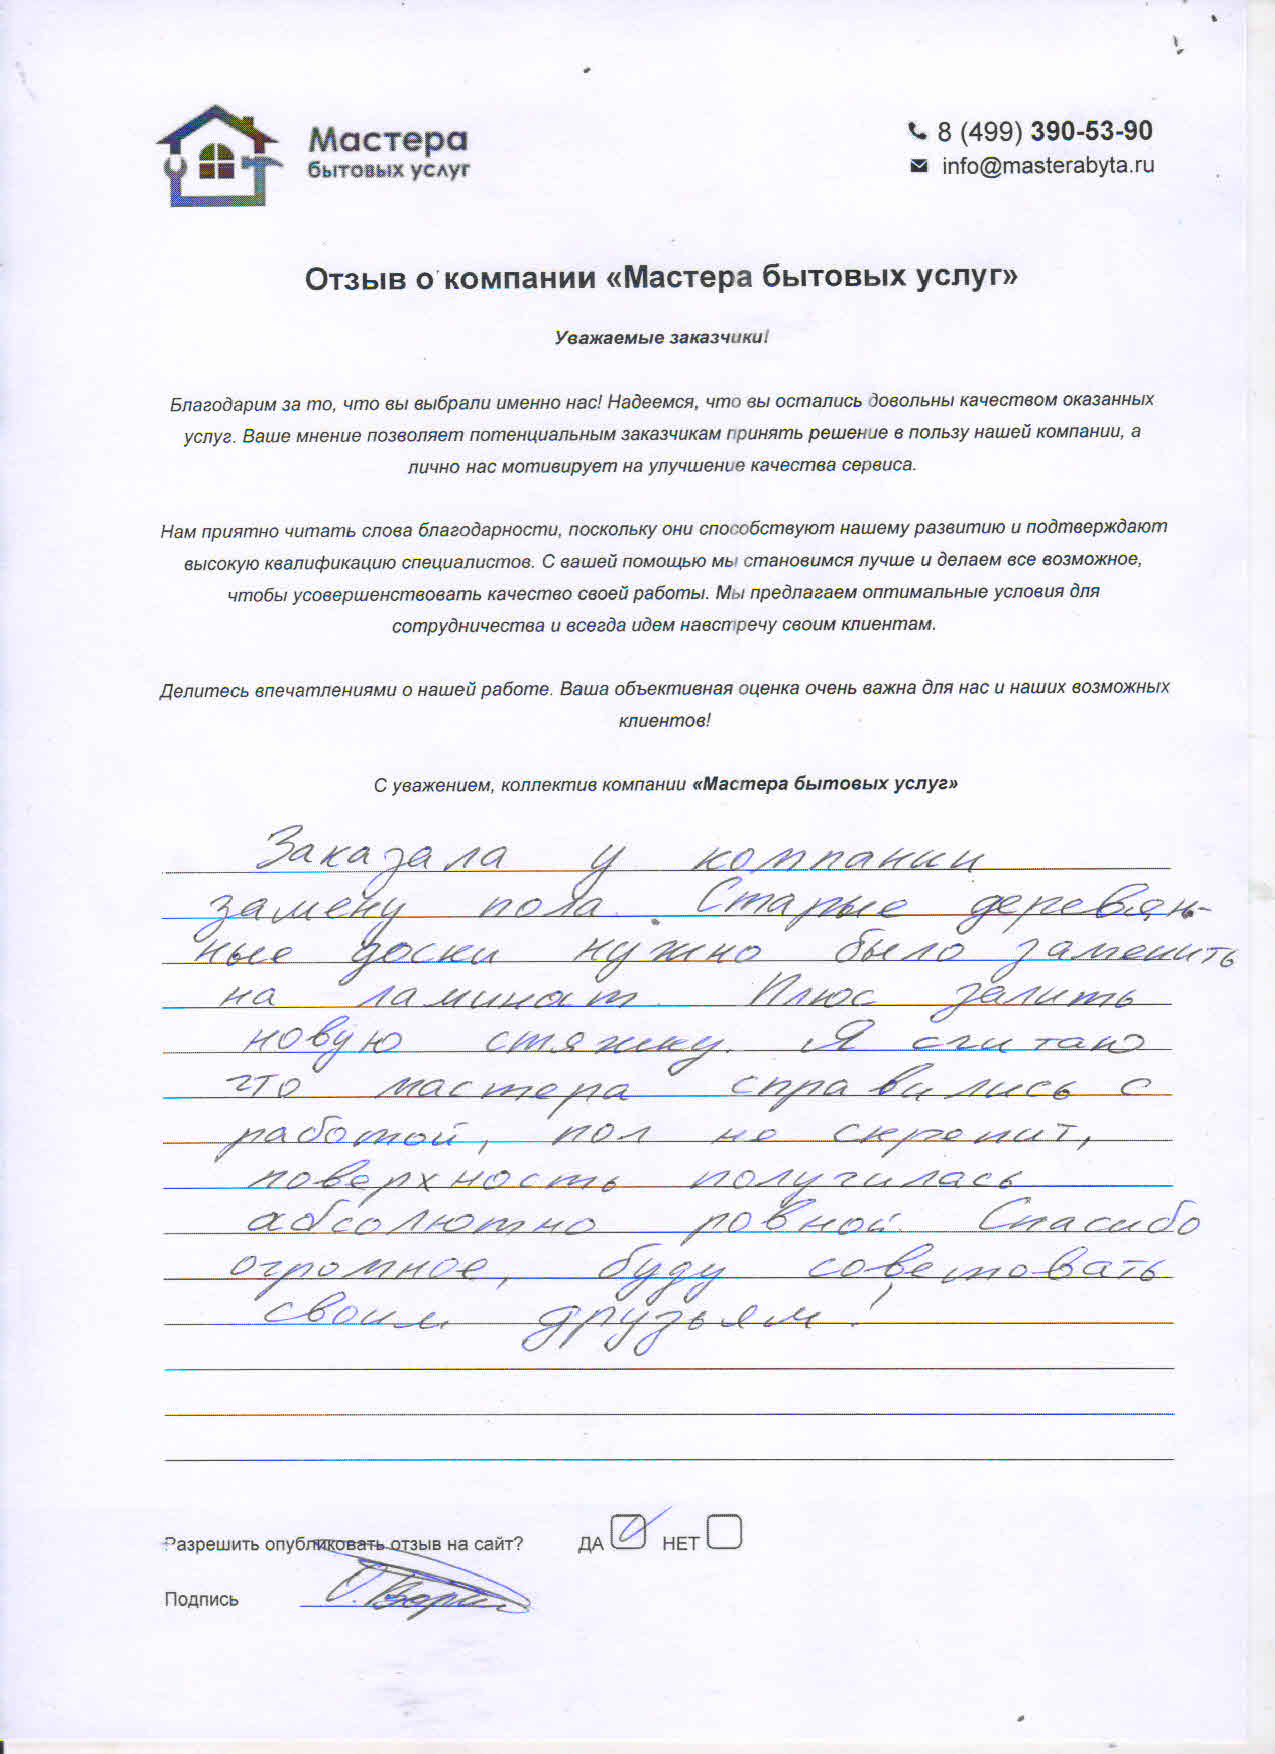 Мастера
бытовых услуг
8 (499) 390-53-90
info@masterabyta.ru
Отзыв о компании «Мастера бытовых услуг»
Уважаемые заказчики!
Благодарим за то, что вы выбрали именно нас! Надеемся, что вы остались довольны качеством оказанных
услуг. Ваше мнение позволяет потенциальным заказчикам принять решение в пользу нашей компании, а
лично нас мотивирует на улучшение качества сервиса.
Нам приятно читать слова благодарности, поскольку они способствуют нашему развитию и подтверждают
высокую квалификацию специалистов. С вашей помощью мы становимся лучше и делаем все возможное,
чтобы усовершенствовать качество своей работы. Мы предлагаем оптимальные условия для
сотрудничества и всегда идем навстречу своим клиентам.
Делитесь впечатлениями о нашей работе. Ваша объективная оценка очень важна для нас и наших возможных
клиентов!
С уважением, коллектив компании «Мастера бытовых услуг»
Заказала у компании
замену пола. Старые деревян-
ные доски нужно было заменить
на ламинат. Плюс залить
новую стяжку. Я считаю
что мастера справились с
работой, пол не скрепит,
поверхность получилась
абсолютно ровной. Спасибо
огромное, буду советовать
своим друзьям!
Разрешить опубликовать отзыв на сайт? ДА НЕТ
Подпись